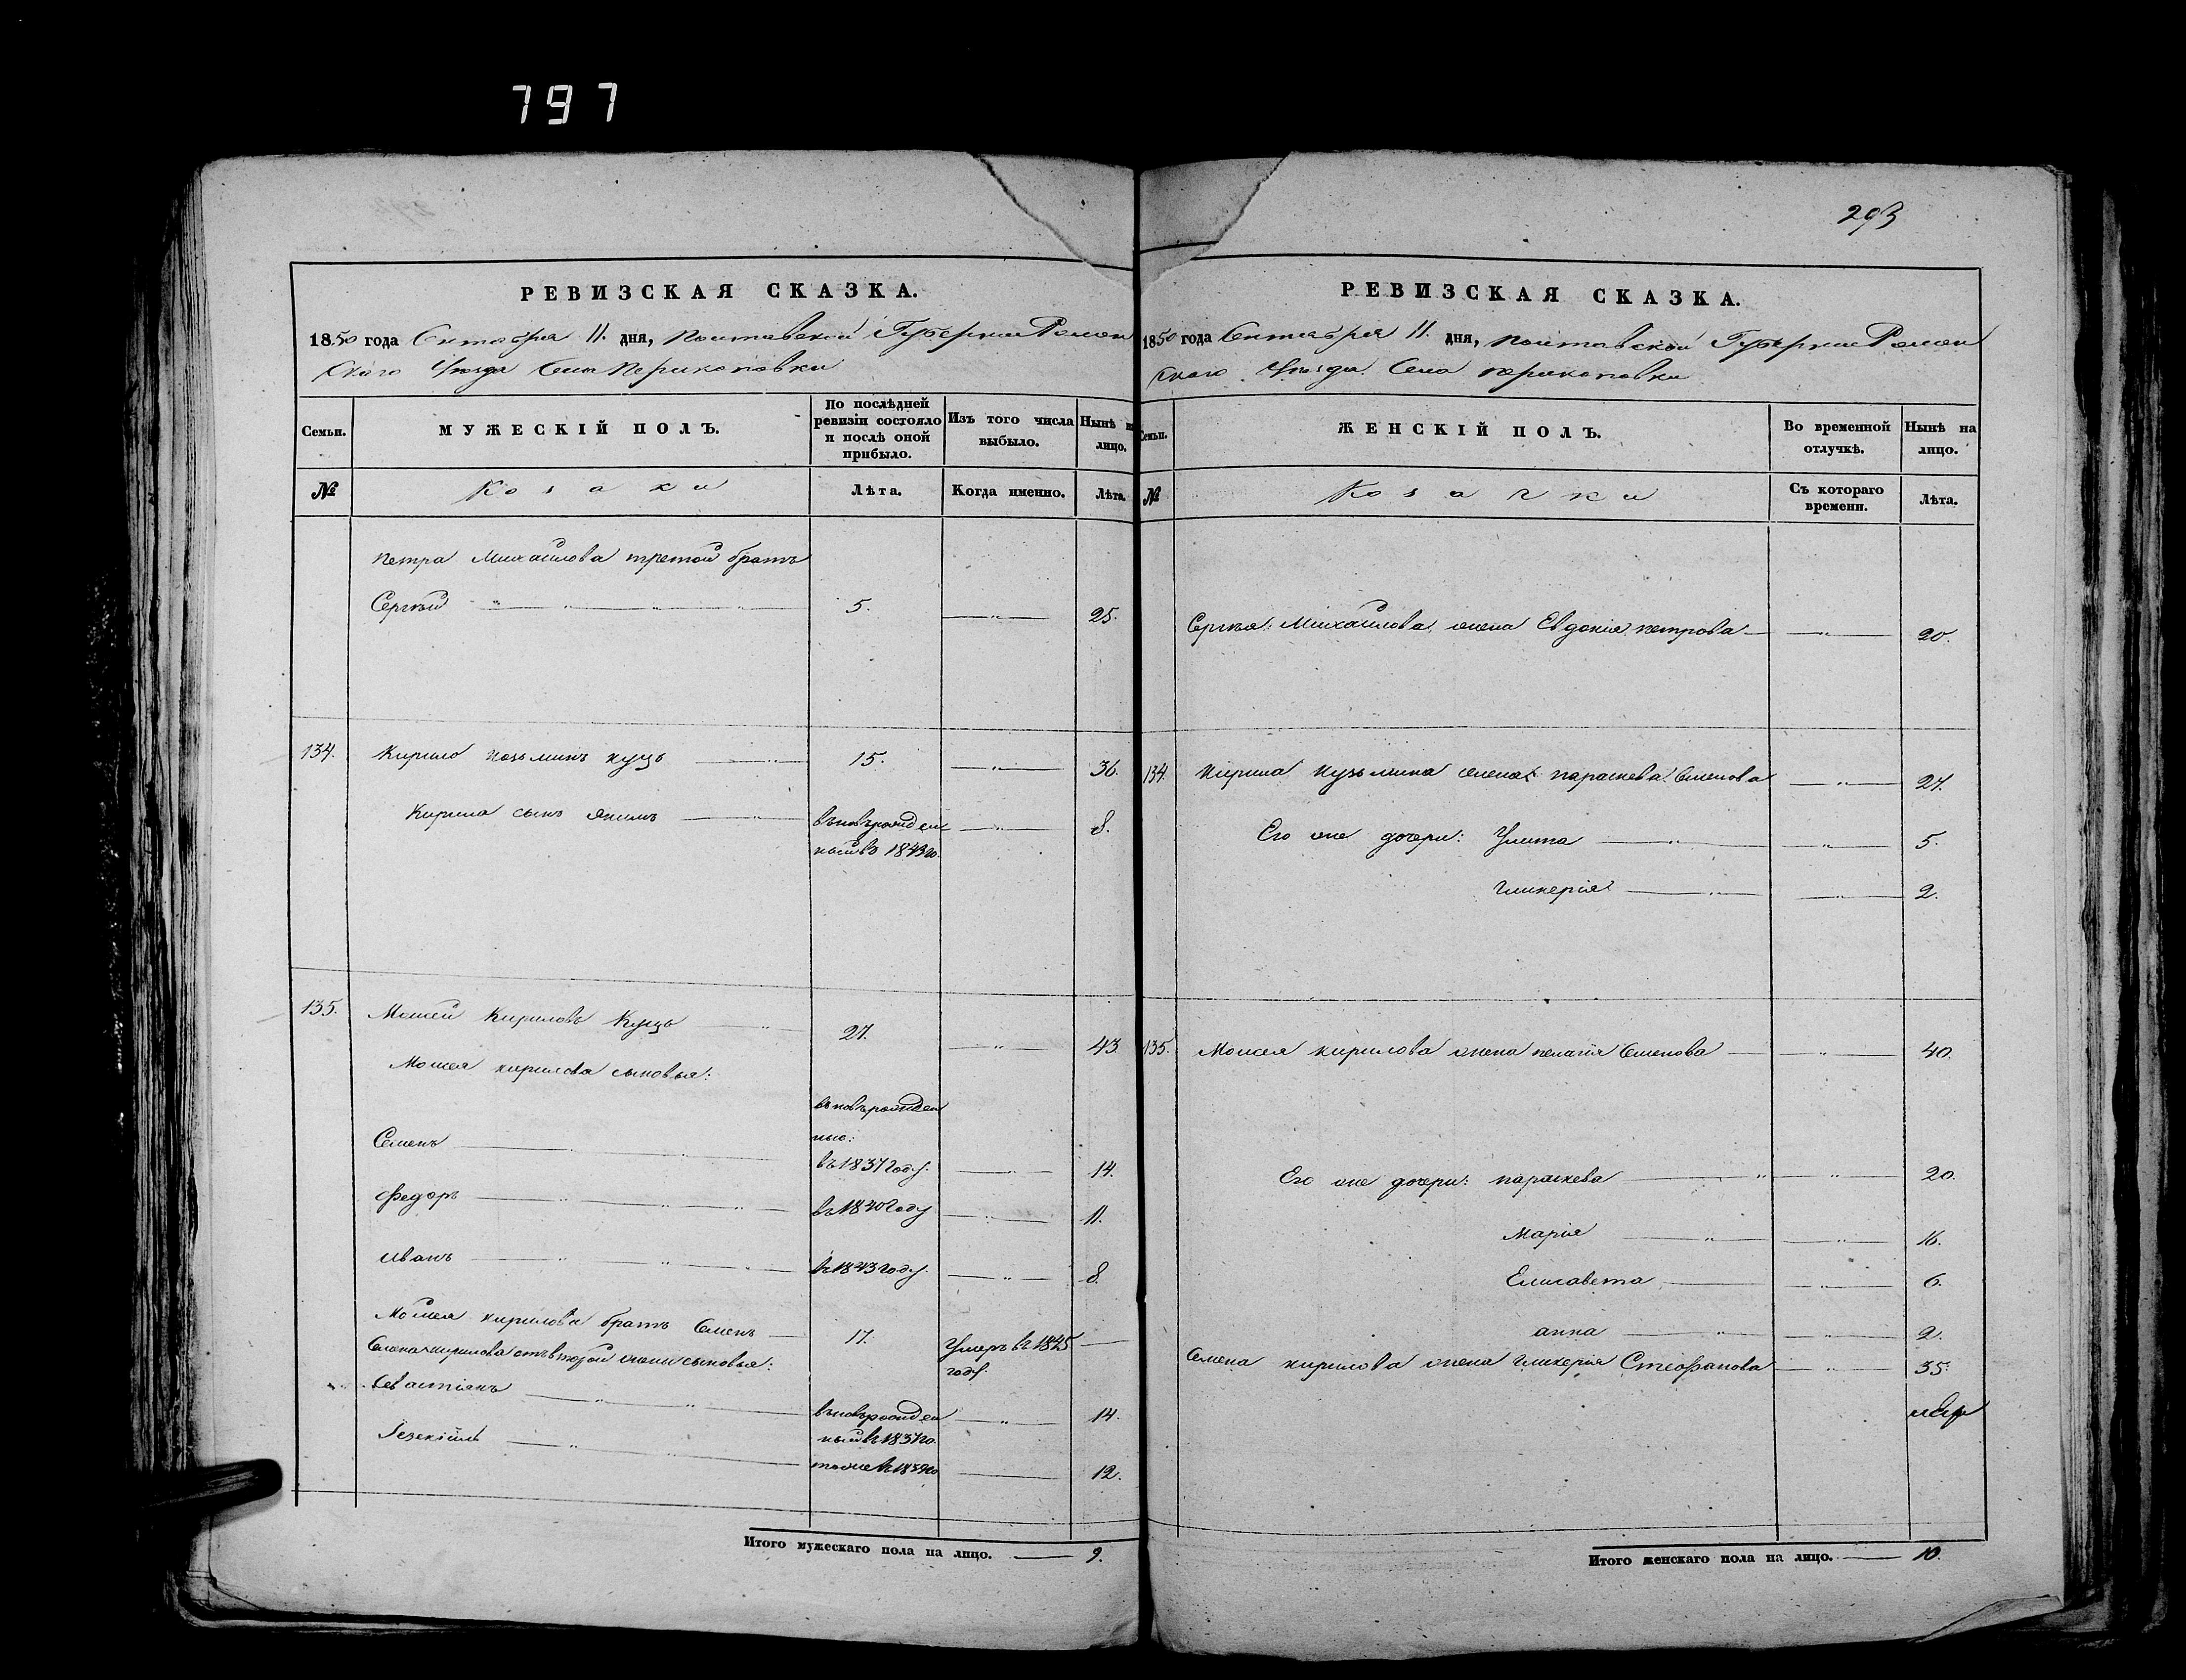 797
293
РЕВИЗСКАЯ СКАЗКА.
1850 года Октября 11. дня, Полтавской Губернии Ромен
скаго Уезда Села Перекоповки
Семьи.
МУЖЕСКІЙ ПОЛЪ.
По послѣдней ревизіи состояло и послѣ оной прибыло.
Изъ того числа выбыло.
Нынѣ на лицо.
№
Козаки
Лѣта.
Когда именно.
Лѣта.
Петра Михайлова третой братъ
Сергѣй 5. 25.
134. Кирило Козьминъ Куцъ 15. 36.
Кирила сынъ Якимъ вновьрожден 8.
ный въ 1843 го.
135. Моисей Кириловъ Куцъ 27. 43.
Моисея Кирилова сыновья:
вновьрожден
ные:
Семенъ въ 1837 году. 14.
Федоръ въ 1840 году 11.
Иванъ въ 1843 году. 8.
Моисея Кирилова братъ Семенъ 17. Умеръ въ 1845
году.
Семена Кирилова отъ второй жены сыновья:
Севастіянъ вновьрожден 14.
ный въ 1837 го.
Іезекіиль тоже въ 1839 го 12.
Итого мужескаго пола на лицо. 9.
РЕВИЗСКАЯ СКАЗКА.
1850 года Октября 11. дня, Полтавской Губернии Ромен
скаго Уезда Села Перекоповки
Семьи.
ЖЕНСКІЙ ПОЛЪ.
Во временной отлучкѣ.
Нынѣ на лицо.
№
Козачки
Съ котораго времени.
Лѣта.
Сергѣя Михайлова жена Евдокія Петрова 20.
134. Кирила Кузьмина жена Параскева Семенова 27.
Его же дочери: Улита 5.
Гликерія 2.
135. Моисея Кирилова жена Пелагія Семенова 40.
Его же дочери: Параскева 20.
Марія 16.
Елисавета 6.
Анна 2.
Семена Кирилова жена Гликерія Стефанова 35.
Итого женскаго пола на лицо. 10.